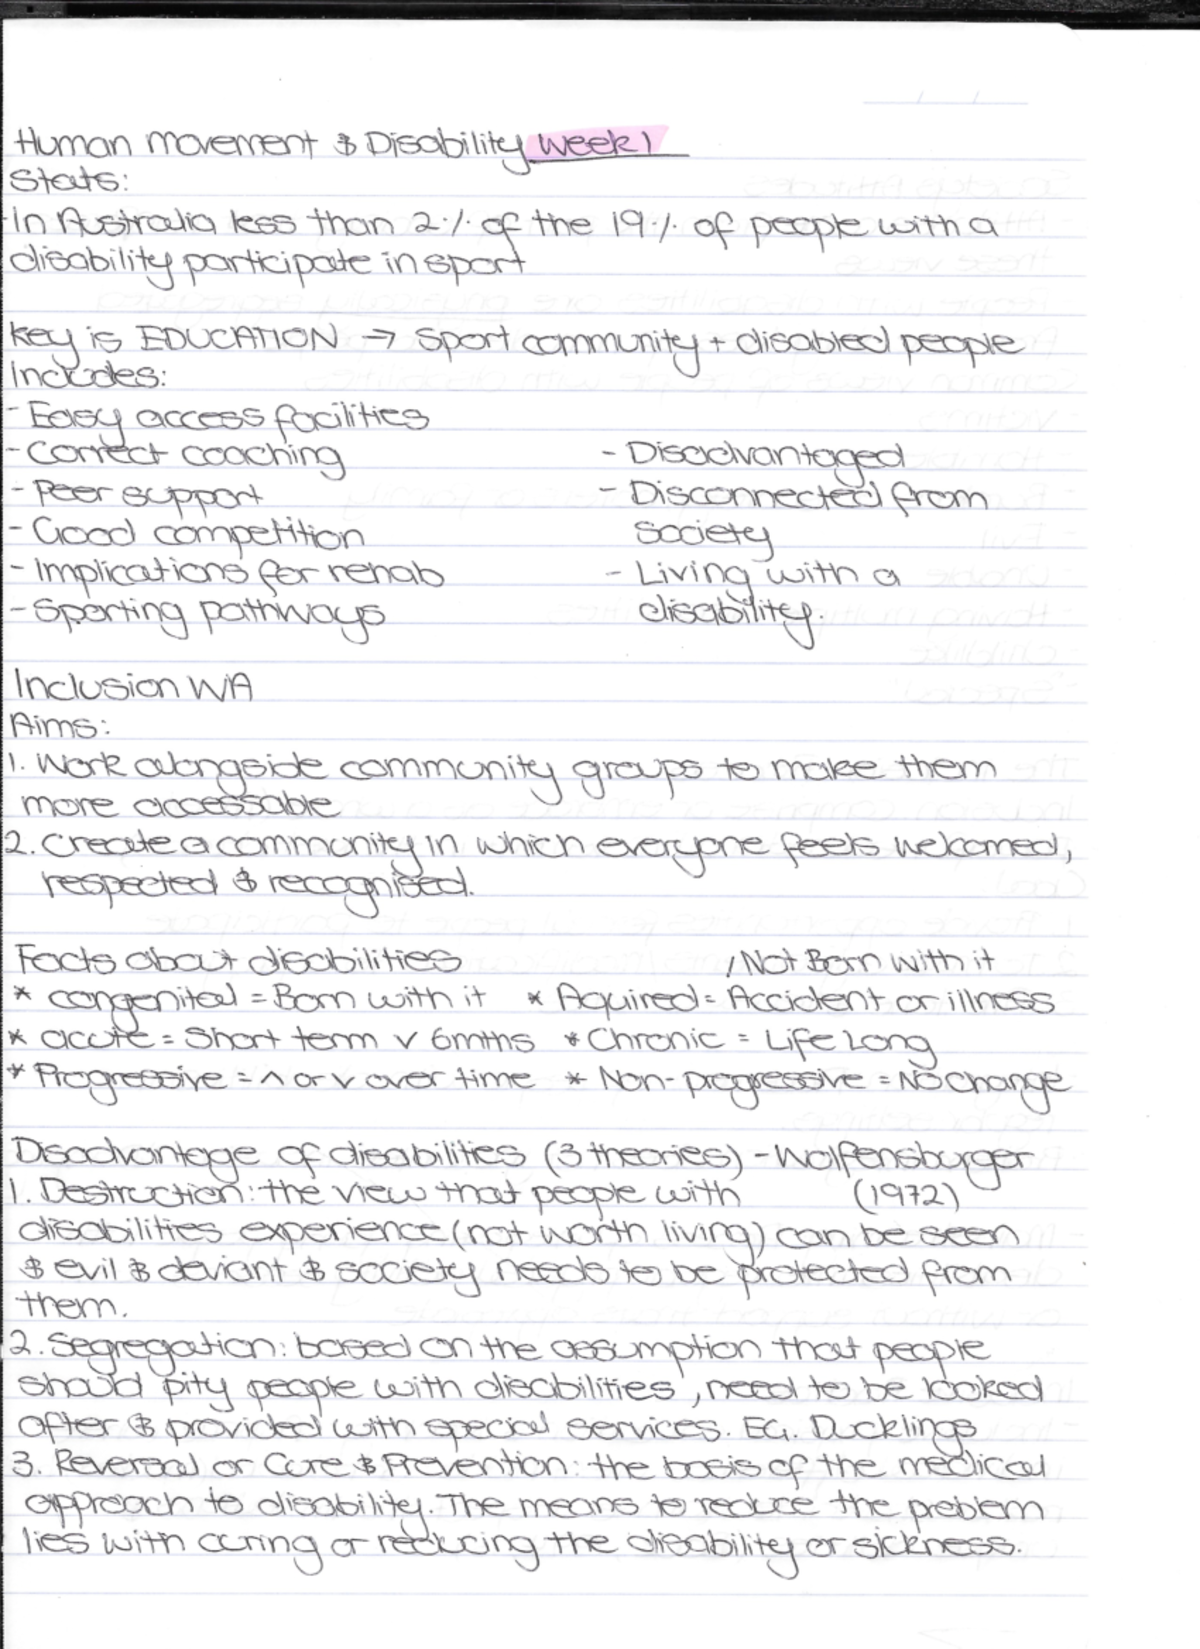 Human Movement & Disability Week 1
Stats:
-In Australia less than 2% of the 19% of people with a
disability participate in sport
Key is EDUCATION → Sport community + disabled people
Includes:
- Easy access facilities
- Correct coaching
- Peer support
- Good competition
- Implications for rehab
- Sporting pathways
- Disadvantaged
- Disconnected from
society
- Living with a
disability.
Inclusion WA
Aims:
1. Work alongside community groups to make them
more accessable
2. Create a community in which everyone feels welcomed,
respected & recognised.
Facts about disabilities / Not Born with it
* congenital = Born with it * Aquired = Accident or illness
* acute = Short term v 6mths * Chronic = Life Long
* Progressive = ^ or v over time * Non-progressive = No change
Disadvantage of disabilities (3 theories) - Wolfensburger
1. Destruction: the view that people with (1972)
disabilities experience (not worth living) can be seen
& evil & deviant & society needs to be protected from
them.
2. Segregation: based on the assumption that people
should pity people with disabilities, need to be looked
after & provided with special services. EG. Ducklings
3. Reversal or Cure & Prevention: the basis of the medical
approach to disability. The means to reduce the problem
lies with curing or reducing the disability or sickness.